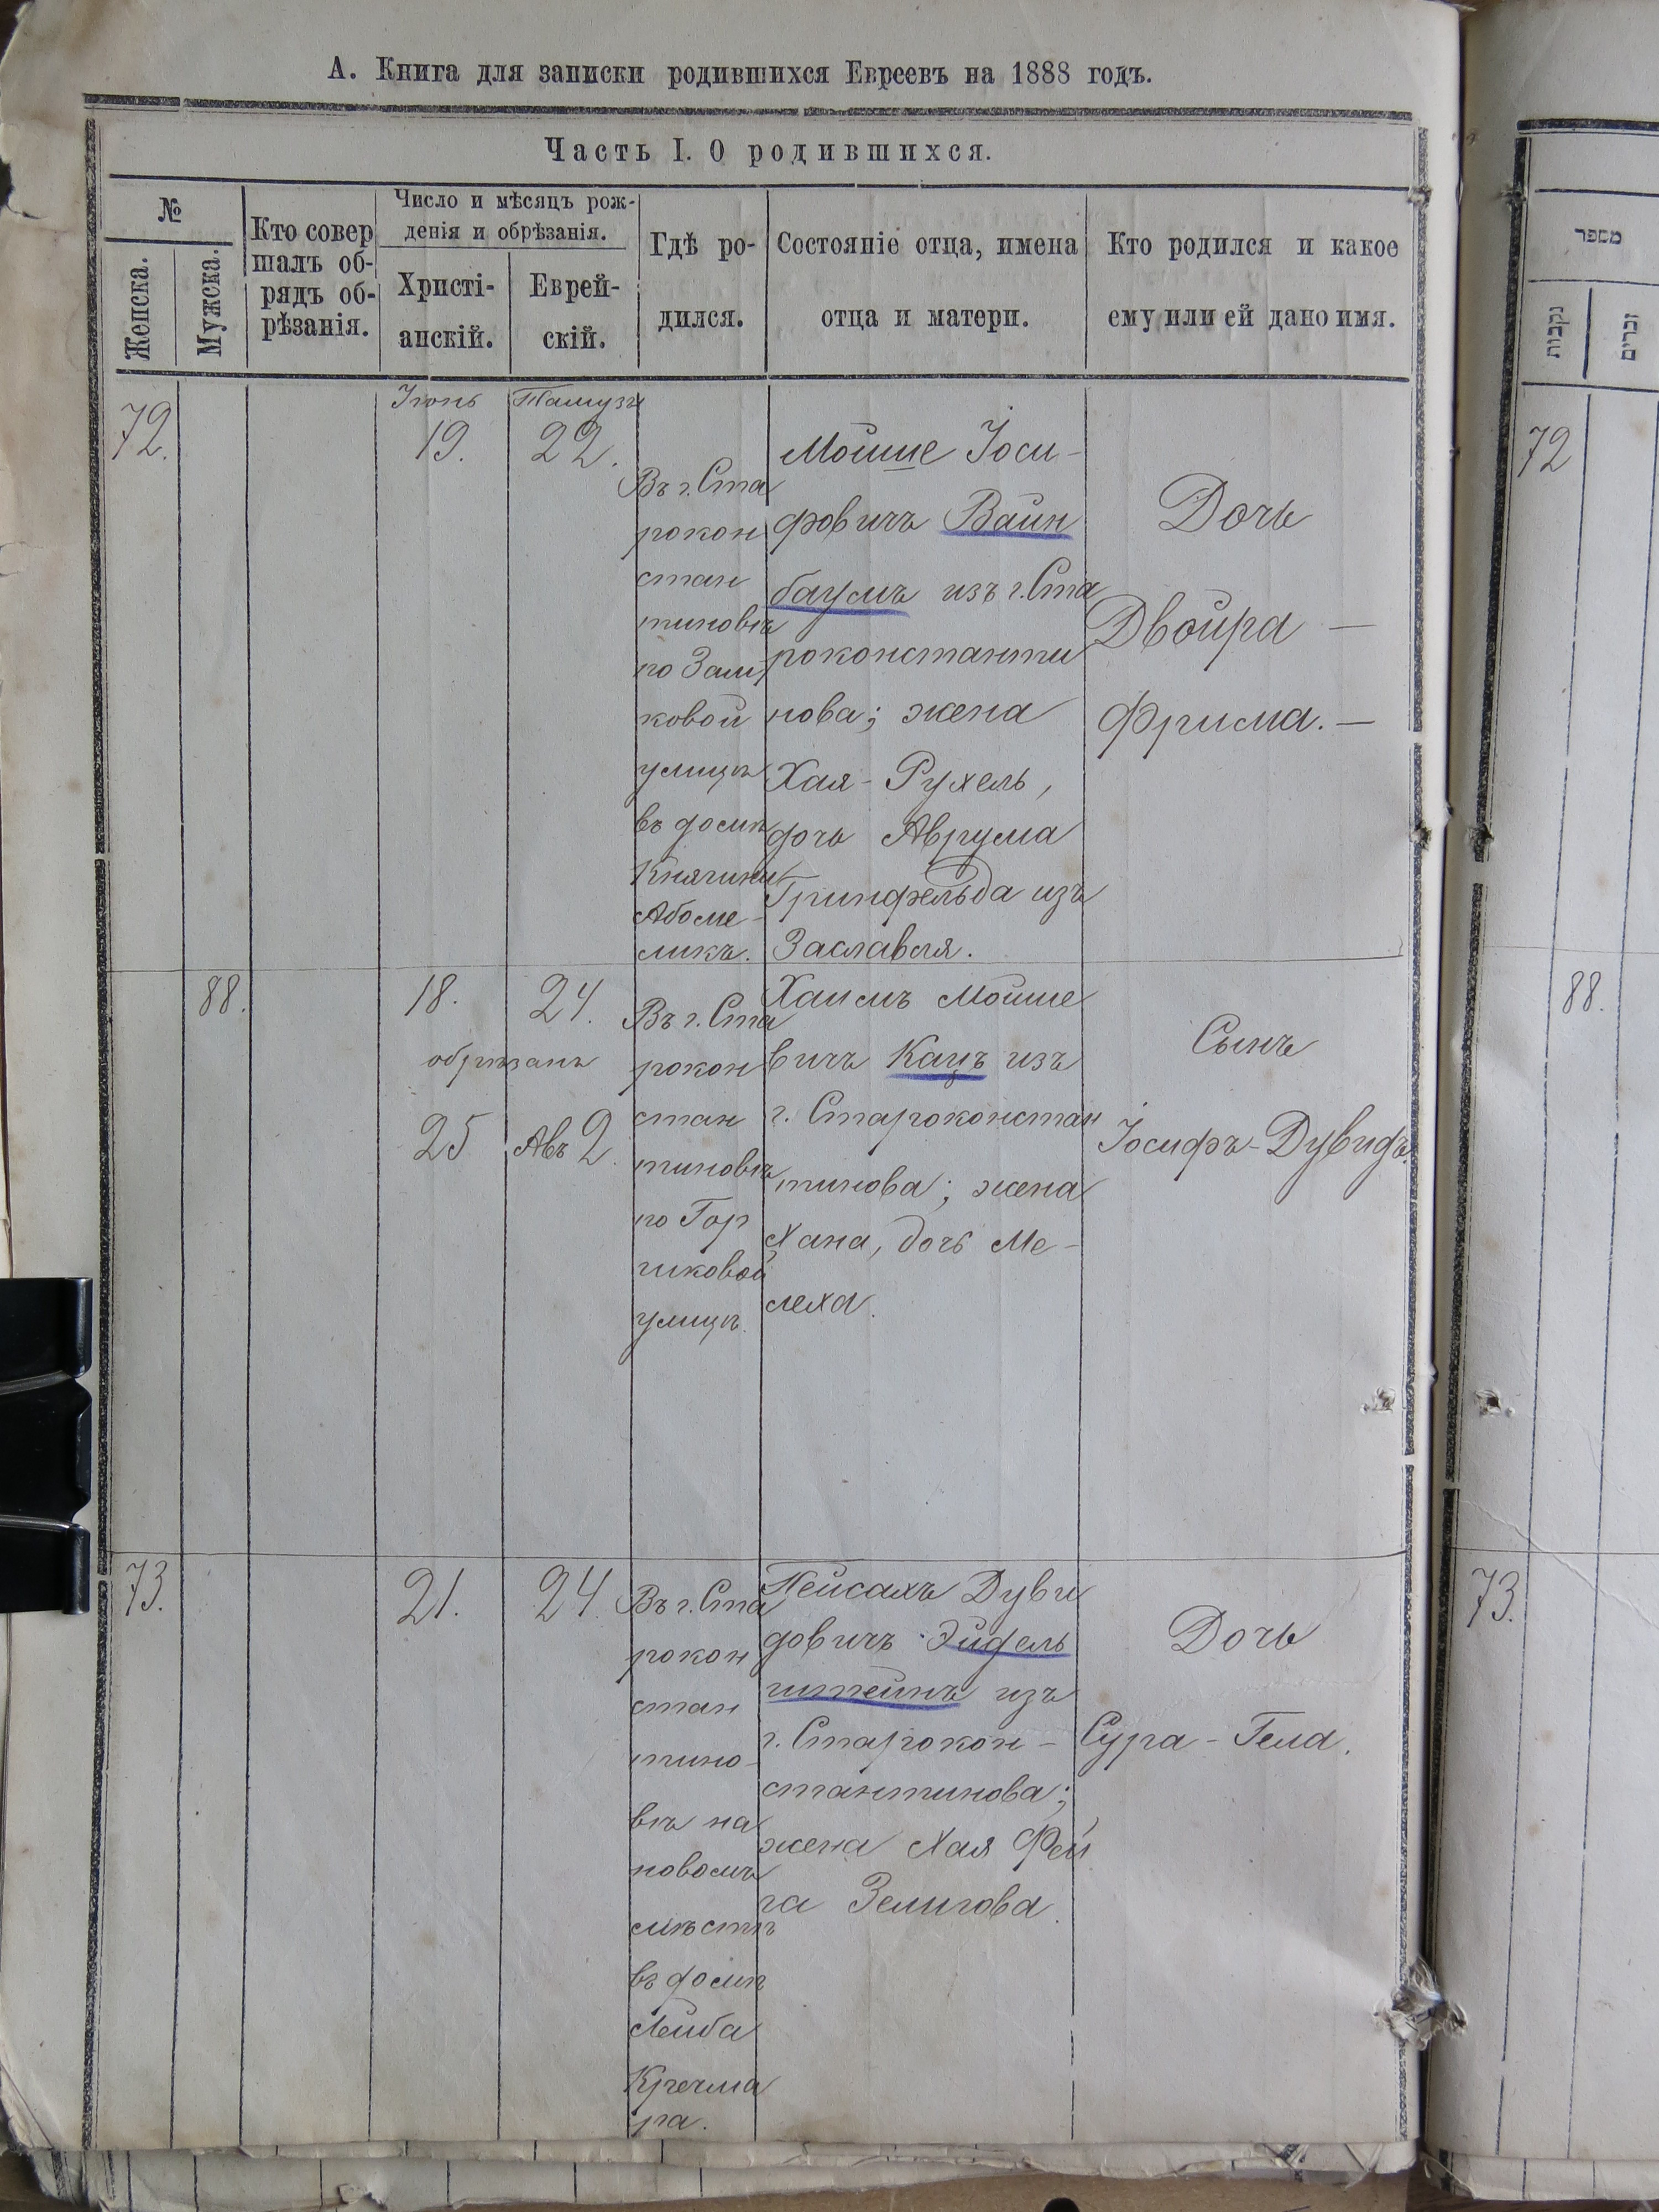 А. Книга для записки родившихся Евреевъ на 1888 годъ.
Часть I. О родившихся.
№
Женска.
Мужска.
Кто совер
шалъ об-
рядъ об-
рѣзанія.
Число и мѣсяцъ рож-
денія и обрѣзанія.
Христі-
анскій.
Еврей-
скій.
Гдѣ ро-
дился.
Состояніе отца, имена
отца и матери.
Кто родился и какое
ему или ей дано имя.
72.
Іюнь
19.
Тамузъ
22.
Въ г. Ста
рокон
стан
тиновѣ
по Зам
ковой
улицѣ
въ домѣ
Княгини
Абаме-
ликъ.
Мойше Іоси-
фовичъ Вайн
баумъ изъ г. Ста
роконстанти
нова; жена
Хая-Рухель,
дочь Аврума
Гринфельда изъ
Заславля.
Дочь
Двойра –
Фрима. –
88.
18.
обрѣзанъ
25
24.
Авъ 2.
Въ г. Ста
рокон
стан
тиновѣ
по Гор
чиковой
улицѣ.
Хаимъ Мойше
вичъ Кацъ изъ
г. Староконстан
тинова; жена
Хана, дочь Ме-
леха.
Сынъ
Іосифъ-Дувидъ.
73.
21.
24.
Въ г. Ста
рокон
стан
тино-
вѣ на
новомъ
мѣстѣ
въ домѣ
Лейба
Кречма
ра.
Пейсахъ Дуви
довичъ Эйдель
штейнъ изъ
г. Старокон-
стантинова;
жена Хая Фей
га Зелигова.
Дочь
Сура-Гела.
מספר
נקבות
זכרים
72
88.
73.